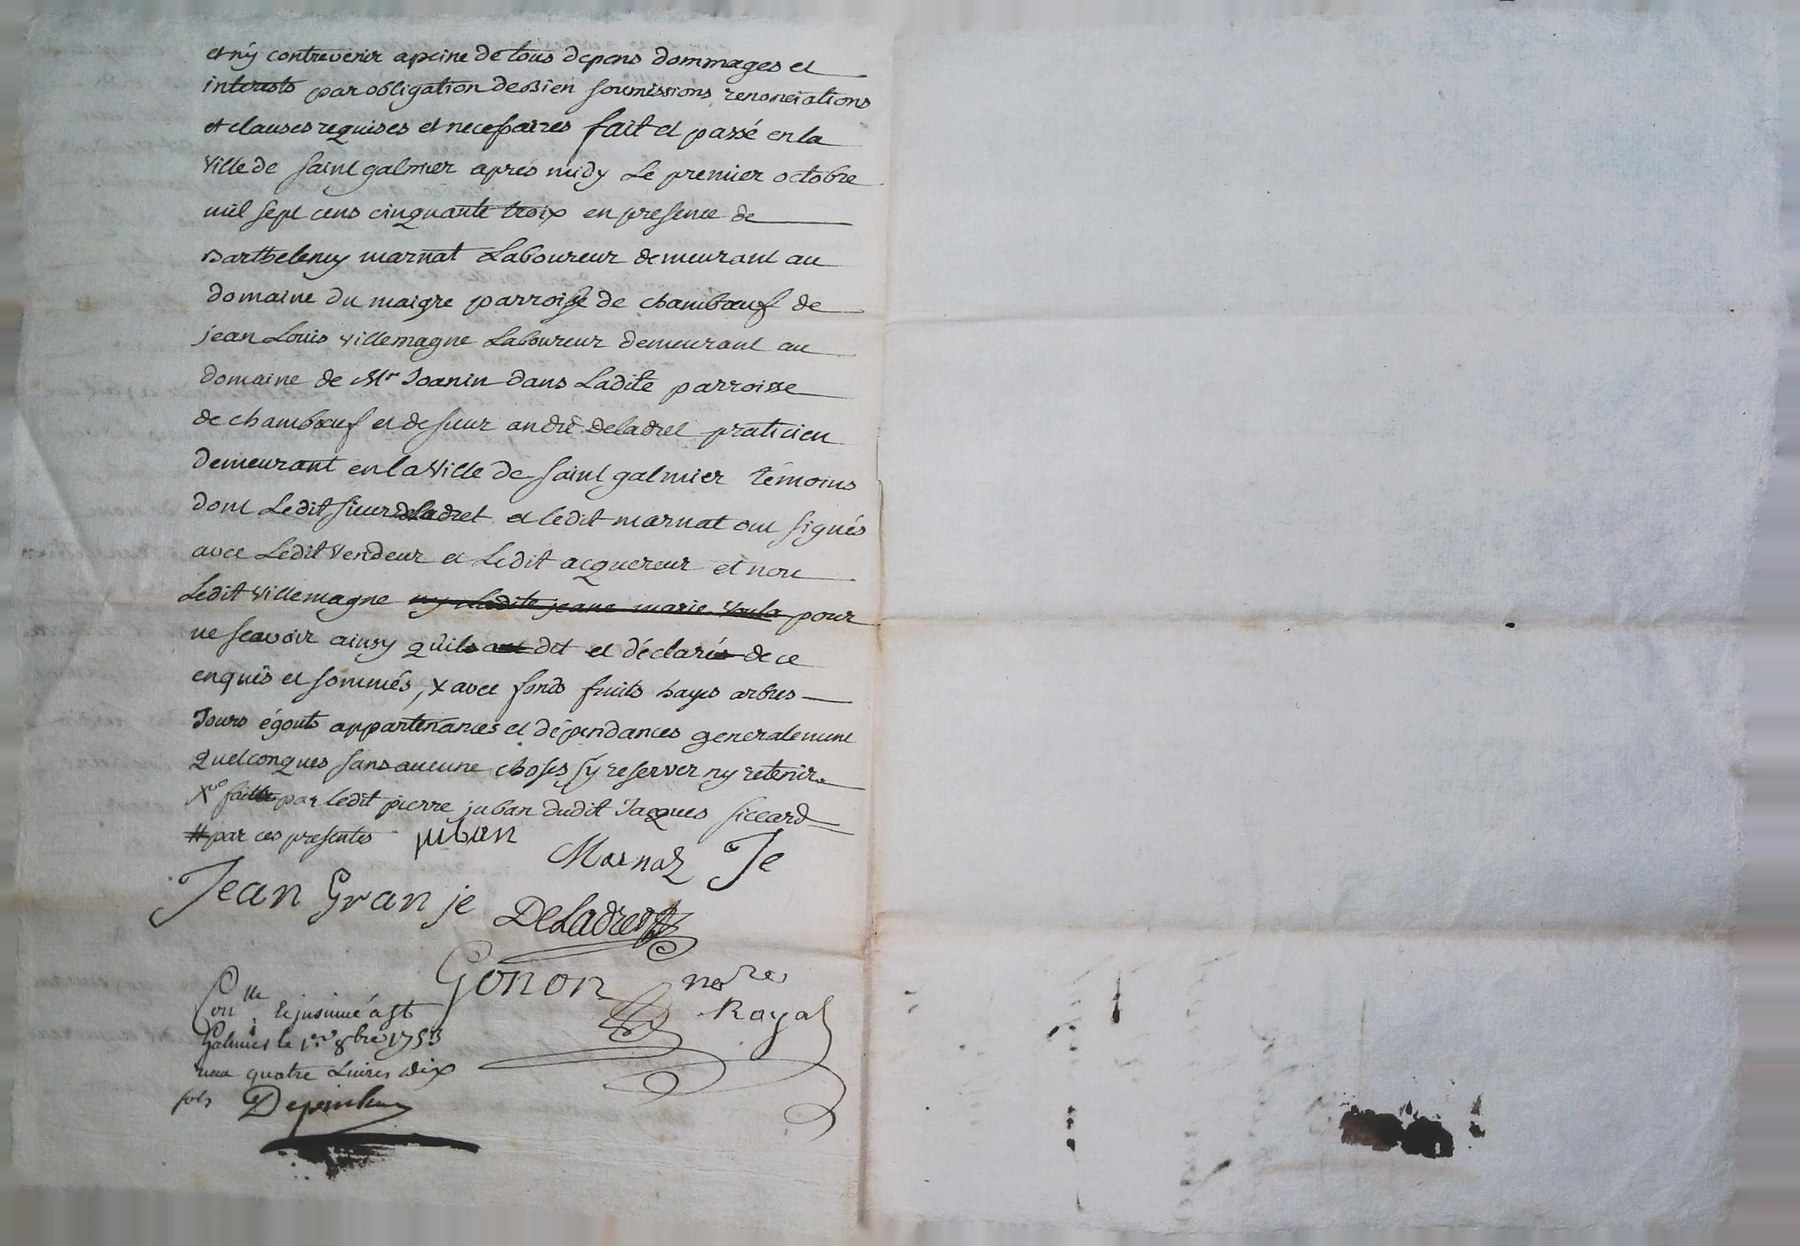 et n'y contrevenir a peine de tous depens dommages et
interests par obligation de bien soumissions, renonciations
et clauses requises et necessaires fait et passé en la
ville de saint galmier aprés midy Le premier octobre
mil sept cens cinquante troix en presence de
Barthelemy marnat Laboureur demeurant au
domaine du maigre parroisse de chambœuf de
jean Louis villemagne Laboureur demeurant au
domaine de Mr Joanin dans Ladite parroisse
de chambœuf et de sieur andré deladret praticien
demeurant en la ville de saint galmier témoins
dont Ledit sieur deladret et ledit marnat ont signés
avec Ledit vendeur et Ledit acquereur et non
Ledit villemagne ny Ladite jeane marie pour
ne scavoir ainsy quils ont dit et déclarés de ce
enquis et sommés, x avec fonds fruits hayes arbres
Jours égouts appartenances et dépendances generalement
Quelconques sans aucune choses s'y reserver ny retenir.
par ledit pierre juban dudit Jacques siccard
# par ces presentes juban
Marnaz Je
Jean Granje Deladret
Gonon nore
Royal
Con.lle & insinué a St
Galmier le 1er 8bre 1753
quatre Livres dix
sols